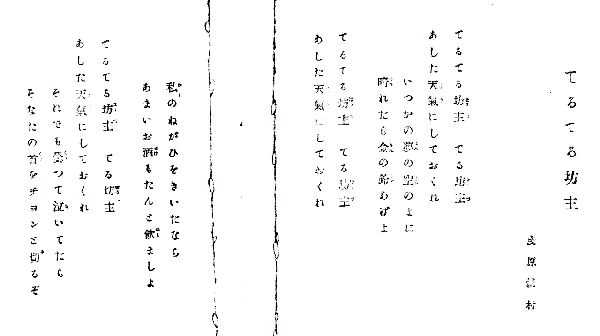 てるてる坊主
浅原鏡村
てるてる坊主　てる坊主
あした天氣にしておくれ
いつかの夢の空のよに
晴れたら金の鈴あげよ
てるてる坊主　てる坊主
あした天氣にしておくれ
私のねがひをきいたなら
あまいお酒をたんと飲ましよ
てるてる坊主　てる坊主
あした天氣にしておくれ
それでも曇つて泣いてたら
そなたの首をチヨンと切るぞ